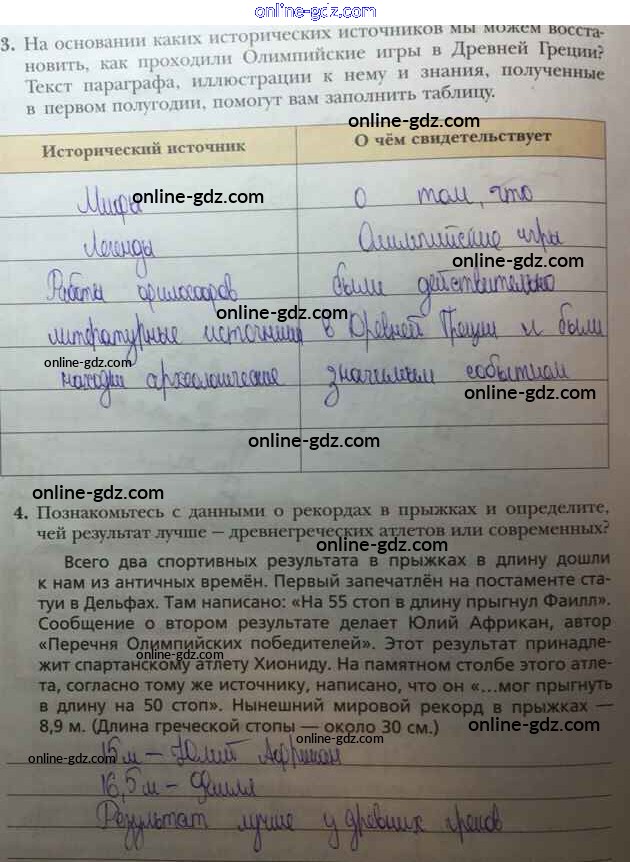 online-gdz.com
3. На основании каких исторических источников мы можем восста-
новить, как проходили Олимпийские игры в Древней Греции?
Текст параграфа, иллюстрации к нему и знания, полученные
в первом полугодии, помогут вам заполнить таблицу.
online-gdz.com
Исторический источник О чём свидетельствует
Мифы online-gdz.com о том, что
Легенды Олимпийские игры
online-gdz.com
Работы философов были действительно
online-gdz.com
литературные источники в Древней Греции и были
online-gdz.com
находки археологические значимым событием
online-gdz.com
online-gdz.com
online-gdz.com
4. Познакомьтесь с данными о рекордах в прыжках и определите,
чей результат лучше — древнегреческих атлетов или современных?
online-gdz.com
Всего два спортивных результата в прыжках в длину дошли
к нам из античных времён. Первый запечатлён на постаменте ста-
туи в Дельфах. Там написано: «На 55 стоп в длину прыгнул Фаилл».
Сообщение о втором результате делает Юлий Африкан, автор
«Перечня Олимпийских победителей». Этот результат принадле-
online-gdz.com
жит спартанскому атлету Хиониду. На памятном столбе этого атле-
та, согласно тому же источнику, написано, что он «...мог прыгнуть
в длину на 50 стоп». Нынешний мировой рекорд в прыжках —
8,9 м. (Длина греческой стопы — около 30 см.)
online-gdz.com
15м – Юлий Африкан
online-gdz.com
online-gdz.com
16,5м – Фаилл
Результат лучше у древних греков
online-gdz.com